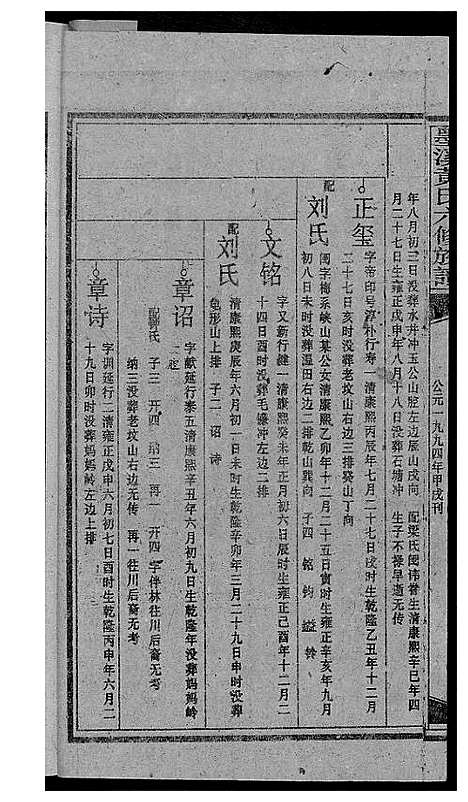 墨溪黄氏六修族谱
公元一九九四年甲戌刊
年八月初三日没葬水井冲玉公山脏左边辰山戌向 配梁氏闺讳誉生清康熙辛巳年四
月二十七日生雍正戊申年八月十八日没葬石塘冲 生子不禄早逝无传
正玺 字帝印号淳朴行寿一清康熙丙辰年七月二十七日戌时生乾隆乙丑年十二月
二十七日亥时没葬老坟山右边三排癸山丁向
配刘氏 闺字梅系峡山某公女清康熙乙卯年十二月二十五日寅时生雍正辛亥年九月
初八日未时没葬温田右边二排乾山巽向 子四 铭 钧 鎰 铃
文铭 字又新行继一清康熙癸未年正月初六日辰时生雍正己酉年十二月二
十四日酉时没葬毛㠠冲左边二排
配刘氏 清康熙庚辰年六月初一日未时生乾隆辛卯年三月二十九日申时没葬
龟形山上排 子二 诏 诗
章诏 字献延行泰五清康熙辛丑年六月初九日生乾隆年没葬妈妈岭
配 氏 子三 开四 纳三 再一 开四字伴林往川后裔无考
纳三没葬老坟山右边无传 再一往川后裔无考
章诗 字训延行二清雍正戊申六月初七日酉时生乾隆丙申年六月二
十九日卯时没葬妈妈岭左边上排